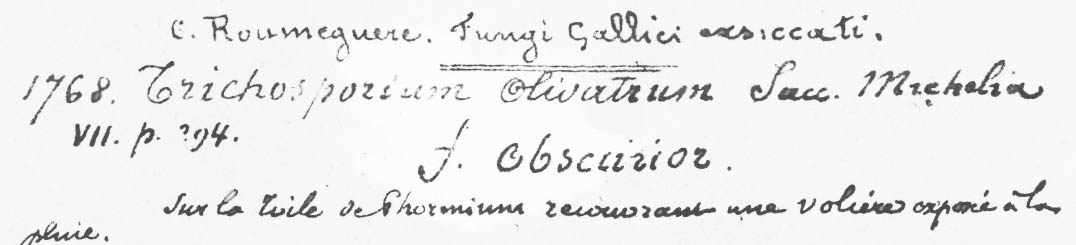 C. Roumeguere. Fungi Gallici exsiccati.
1768. Trichosporium Olivatrum Sacc. Michelia
VII. p. 294.
f. Obscurior.
Sur la toile de Phormium recouvrant une volière exposé à la
pluie.